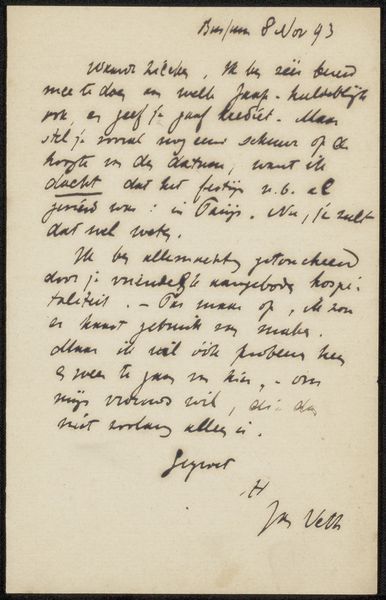 Bussum 8 Nov 93
Waarde Zilcken, Ik ben zéér bereid
mee te doen aan welk
ook, en geef je gaaf krediet. Maar
stel je vooral nog eens scherper op de
hoogte van den datum, want ik
dacht dat het festijn n.b. al
geweest was: in Parijs. Nu, je zult
dat wel weten.
Ik ben allemachtig getoucheerd
door je vriendelijk aangeboden hospi-
taliteit. – Pas maar op, ik zou
er haast gebruik van maken.
Maar ik wil óók probeeren heen
en weer te gaan van hier, – om
mijn vrouws wil, die dan
niet zoolang alleen is.
Gegroet
Jan Veth